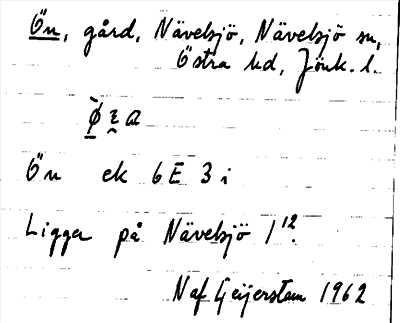 Ön, gård, Nävelsjö, Nävelsjö sn,
Östra hd, Jönk. l.
Ön ek 6E 3i
Ligger på Nävelsjö 1¹².
Naf Geijerstam 1962